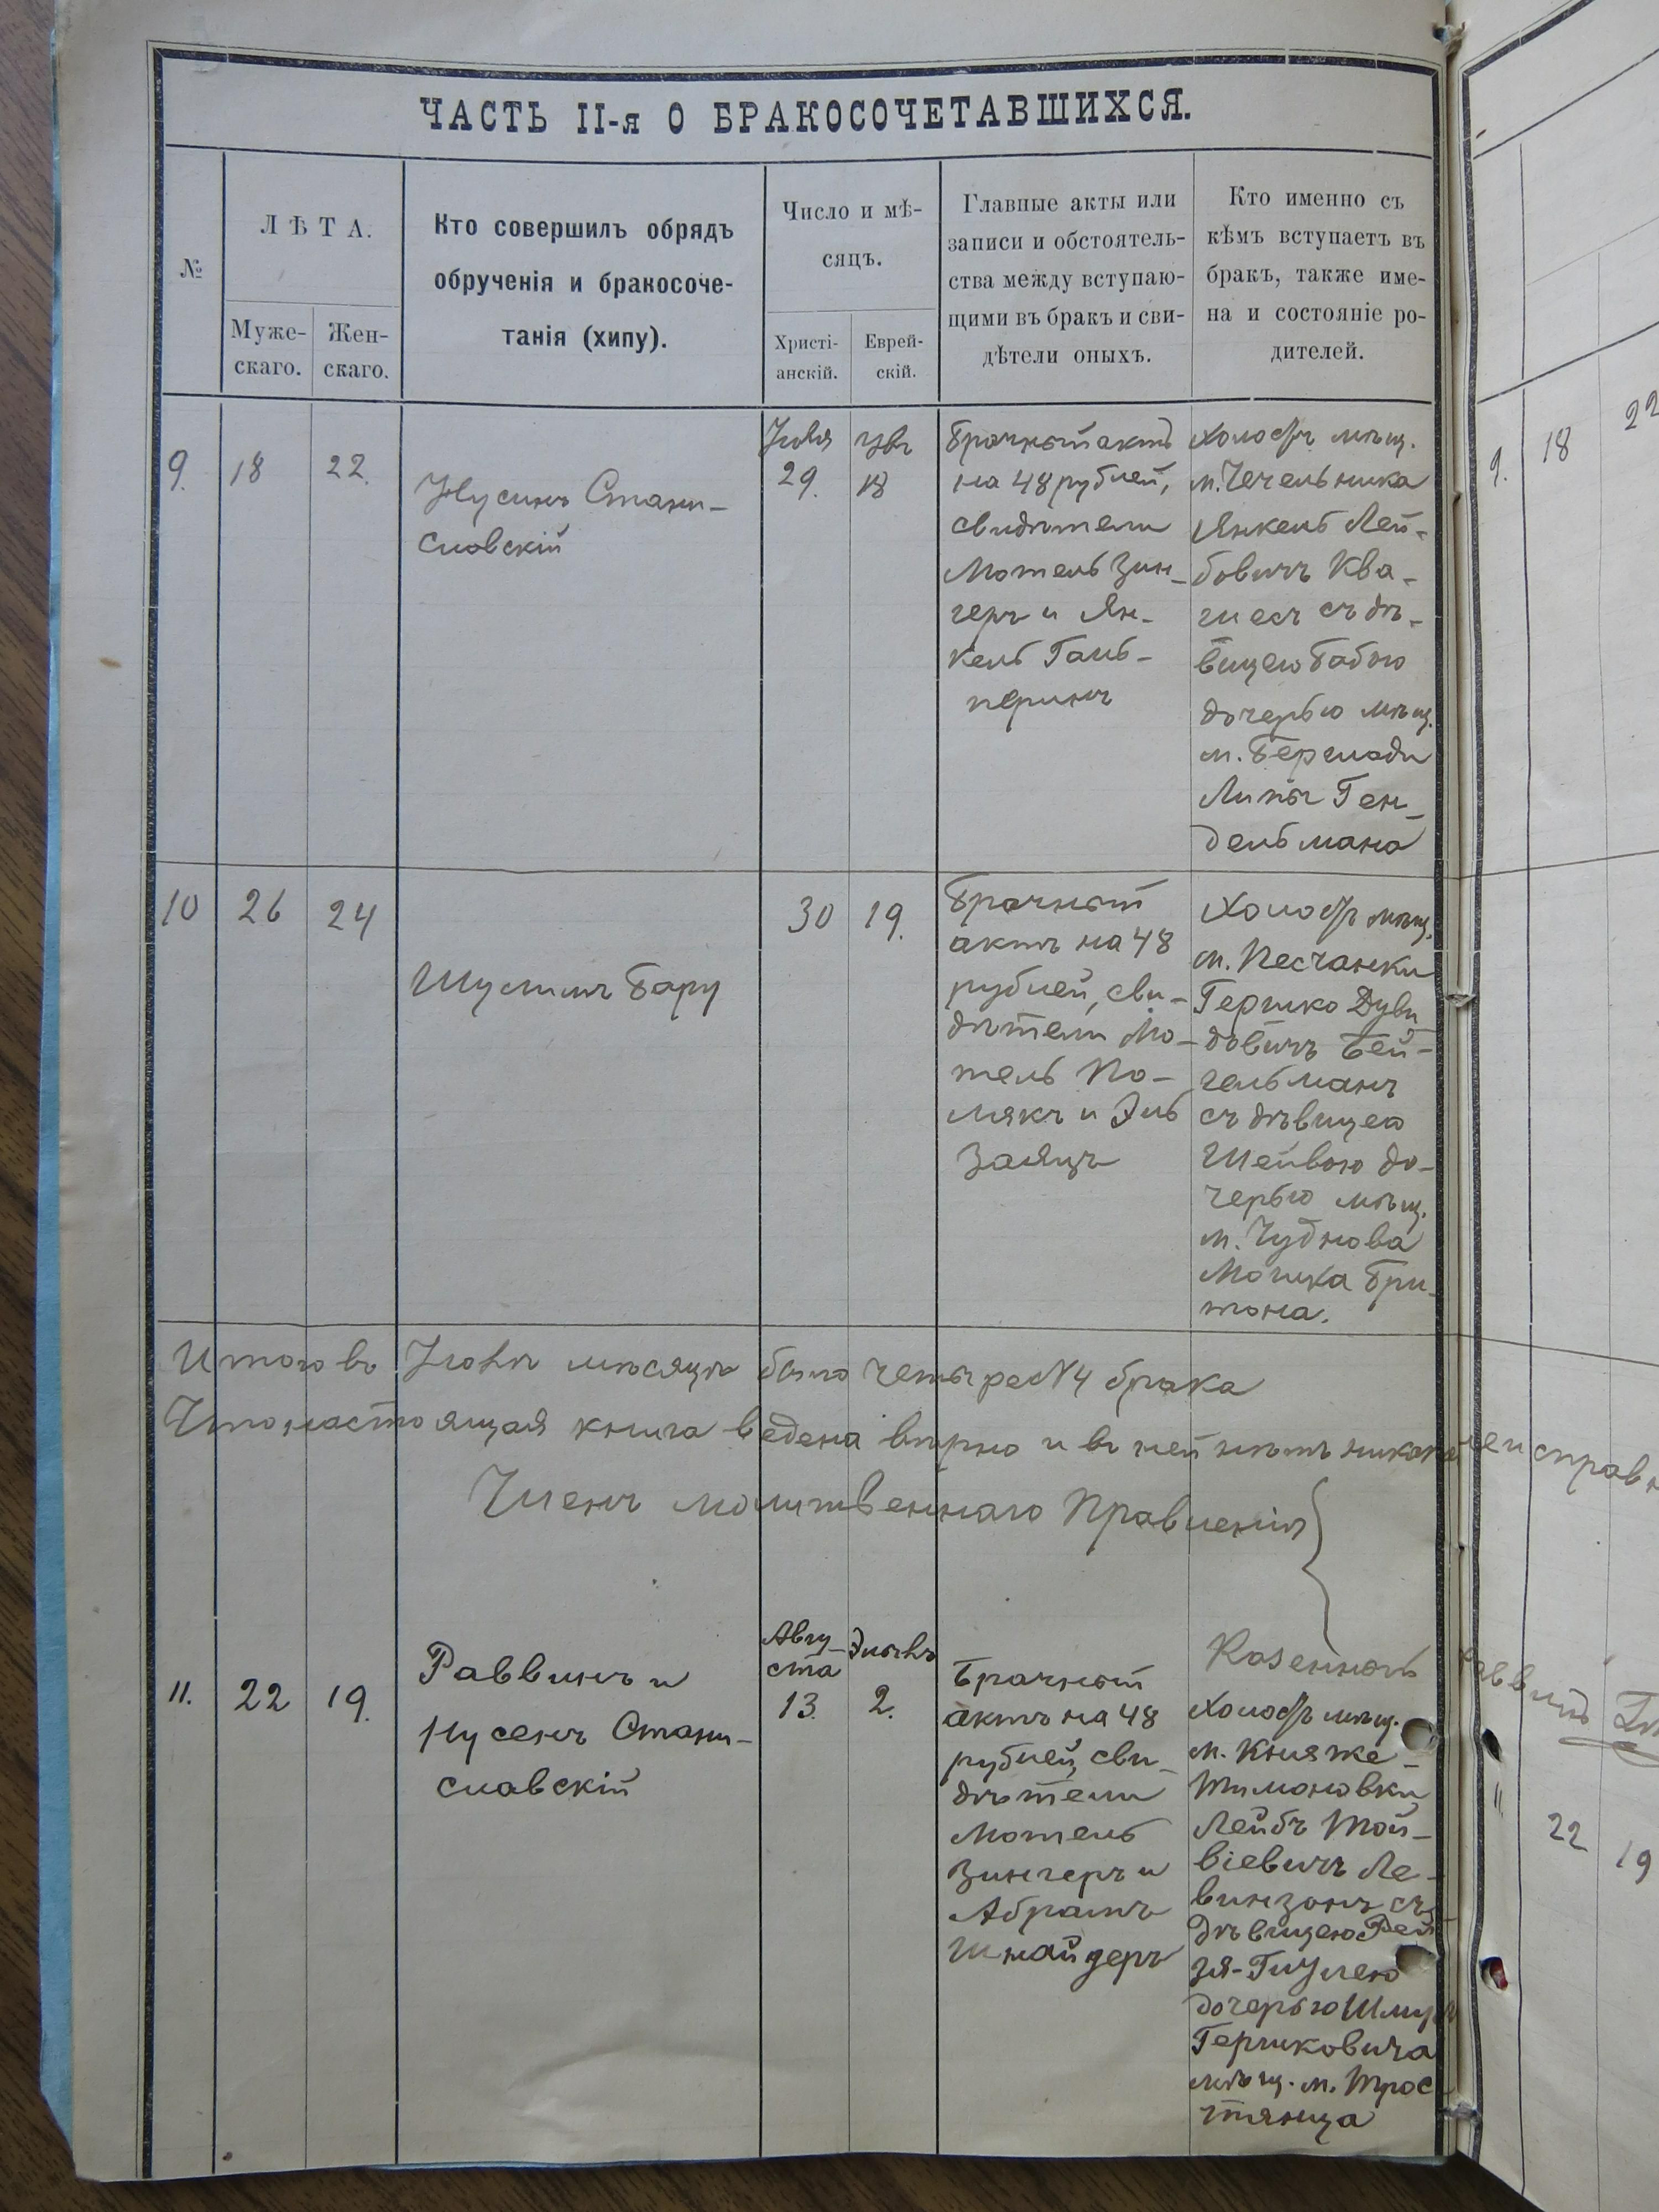 ЧАСТЬ II-я О БРАКОСОЧЕТАВШИХСЯ.
№
ЛѢТА.
Муже-
скаго.
Жен-
скаго.
Кто совершилъ обрядъ
обрученія и бракосоче-
танія (хипу).
Число и мѣ-
сяцъ.
Христі-
анскій.
Еврей-
скій.
Главные акты или
записи и обстоятель-
ства между вступаю-
щими въ бракъ и сви-
дѣтели оныхъ.
Кто именно съ
кѣмъ вступаетъ въ
бракъ, также име-
на и состояніе ро-
дителей.
9.
18
22.
Нусинъ Стани-
словскій
Іюля
29.
18
Брачный актъ
на 48 рублей,
свидѣтели
Мотель Зин-
геръ и Ян-
кель Галь-
перинъ
Холостъ мѣщ.
м. Чечельника
Янкель Лей-
бовичъ Ква-
шесъ съ дѣ-
вицею Бабою
дочерью мѣщ.
м. Бершади
Липы Ген-
дельмана
10
26
24
Шулимъ Бару
30
19.
Брачный
актъ на 48
рублей, сви-
дѣтели Мо-
тель По-
лякъ и Эль
Заяцъ
Холостъ мѣщ.
м. Песчанки
Гершко Дуви
довичъ Бей-
гельманъ
съ дѣвицею
Шейвою до-
черью мѣщ.
м. Чуднова
Мошка Бри-
тона.
Итого въ Іюлѣ мѣсяцѣ было четыре №4 брака
Что настоящая книга ведена вѣрно и въ ней нѣтъ никакой неисправн
Членъ молитвеннаго Правленія
Казенный раввинъ
11.
22
19.
Раввинъ и
Нусенъ Стани-
славскій
Авгу-
ста
13.
Элылъ
2.
Брачный
актъ на 48
рублей, сви-
дѣтели
Мотель
Зингеръ и
Абрамъ
Шнайдеръ
Холостъ мѣщ.
м. Княже-
Тимоновки
Лейбъ Той-
віевичъ Ле-
винзонъ съ
дѣвицею Рей
зя-Гитлею
дочерью Шмуля
Гершковича
мѣщ. м. Трос-
тянца
9.
18
22
11
22
19